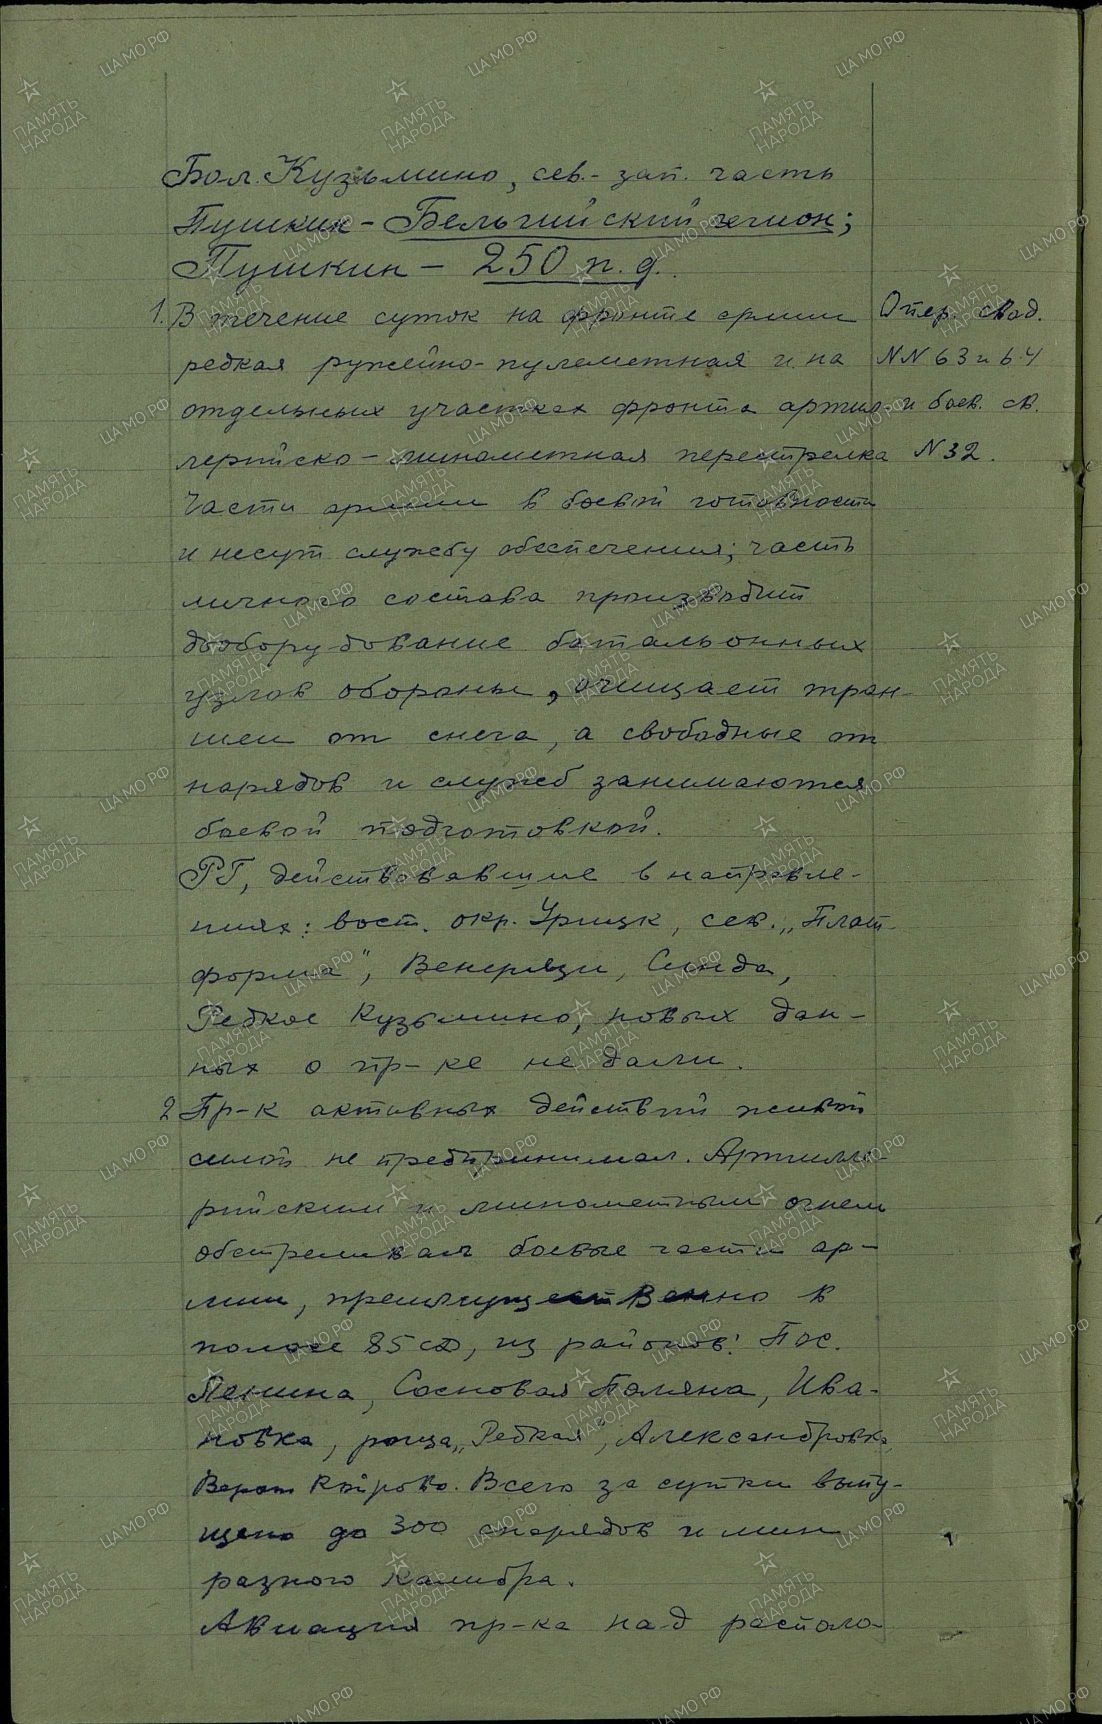 Бол. Кузьмино, сев.-зап. часть
Пушкин - Бельгийский легион;
Пушкин - 250 п.д.
1. В течение суток на фронте армии
редкая ружейно-пулеметная и на
отдельных участках фронта артил-
лерийско-минометная перестрелка
Части армии в боевой готовности
и несут службу обеспечения; часть
личного состава производит
дооборудование батальонных
узлов обороны, очищает тран-
шеи от снега, а свободные от
нарядов и служб занимаются
боевой подготовкой.
РГ, действовавшие в направле-
ниях: вост. окр. Урицк, сев. „Плат-
форма", Венерязи, Синда,
Редкое Кузьмино, новых дан-
ных о пр-ке не дали.
2 Пр-к активных действий живой
силой не предпринимал. Артилле-
рийским и минометным огнем
обстреливал боевые части ар-
мии, преимущественно в
полосе 85 сд, из районов: Пос.
Ленина, Сосновая Поляна, Ива-
новка, роща „Редкая", Александровка,
Койрово. Всего за сутки выпу-
щено до 300 снарядов и мин
разного калибра.
Авиация пр-ка над располо-
Опер. свод.
NN 63 и 64
и боев. св.
N 32.
ПАМЯТЬ НАРОДА
ЦА МО РФ